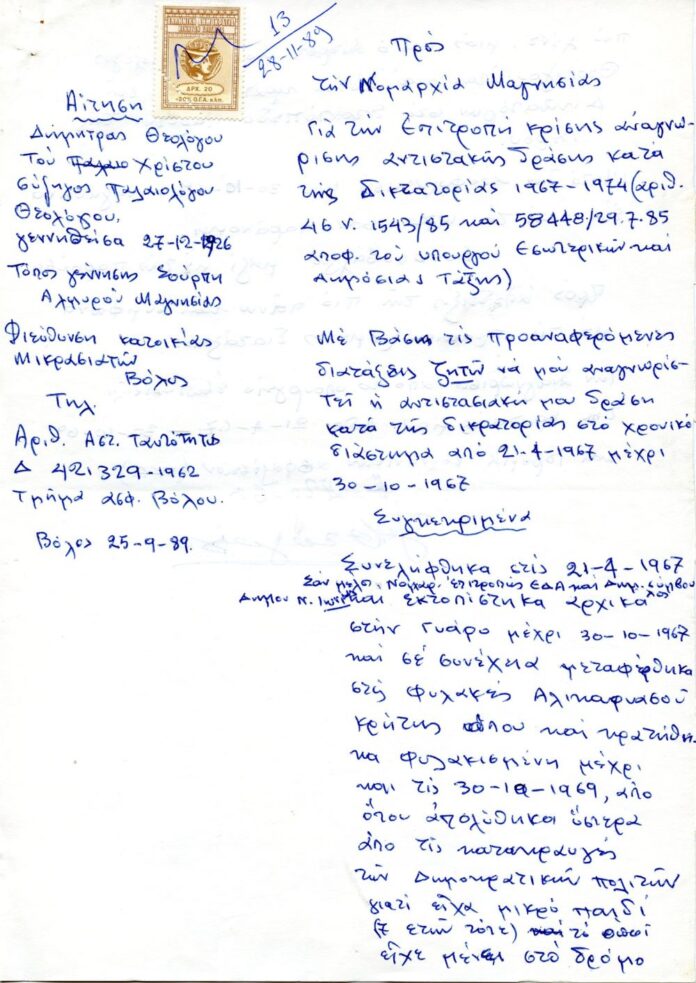 13
28-11-89
ΕΛΛΗΝΙΚΗ ΔΗΜΟΚΡΑΤΙΑ
ΔΡΧ. 20
Αίτηση
Δήμητρας Θεολόγου
Τού Χρίστου
σύζηγος Παλαιολόγου
Θεολόγου,
γεννηθείσα 27-12-1926
Τόπος γέννησης Σούρπη
Αλμυρού Μαγνησίας
Διεύθυνση κατοικίας
Μικρασιατών
Βόλος
Τηλ.
Αριθ. Αστ. Ταυτότητας
Δ 421329-1962
Τμήμα ασφ. Βόλου.
Βόλος 25-9-89.
Πρός
τήν Νομαρχία Μαγνησίας
Γιά τήν Επιτροπή κρίσης αναγνώ-
ρισης αντιστακής δράσης κατά
τής δικτατορίας 1967-1974 (αριθ.
46 ν. 1543/85 και 58448/29.7.85
αποφ. τού υπουργού Εσωτερικών και
Δημόσιας Τάξης)
Μέ Βάση τις προαναφερόμενες
διατάξεις ζητώ νά μού αναγνωρίσ-
τεί ή αντιστασιακή μου δράση
κατά τής δικτατορίας στό χρονικό
διάστημα από 21-4-1967 μέχρι
30-10-1967
Συγκεκριμένα
Συνελήφθηκα στίς 21-4-1967
Σάν μέλος Νομαρ. Επιτροπής ΕΔΑ και Δημ. σύμβουλος
Δήμου Ν. Ιωνίας και εκτοπίστηκα αρχικά
στήν Γυάρο μέχρι 30-10-1967
και σέ συνέχεια μεταφέρθηκα
στίς φυλακές Αλικαρνασού
Κρήτης όπου και κρατήθη-
κα φυλακισμένη μέχρι
και τίς 30-10-1969, από
ότου απολύθηκα ύστερα
από τίς κατακραυγές
τών Δημοκρατικών πολιτών
γιατί είχα μικρό παιδί
(7 ετών τότε) τό οποί
είχε μένει στό δρόμο